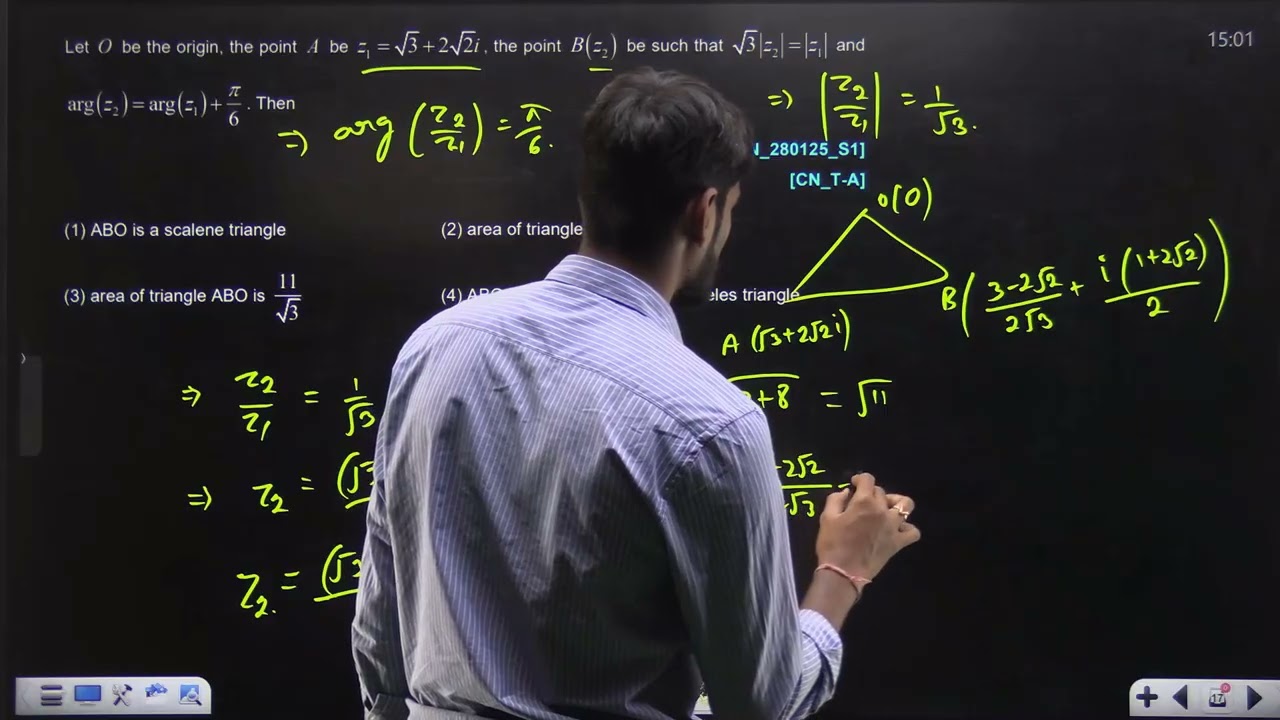 Let O be the origin, the point A be z₁ = √3 + 2√2i, the point B(z₂) be such that √3|z₂| = |z₁| and
arg(z₂) = arg(z₁) + π/6. Then
⇒ arg(z₂/z₁) = π/6.
⇒ |z₂/z₁| = 1/√3.
_280125_S1]
[CN_T-A]
(1) ABO is a scalene triangle
(2) area of triangle
(3) area of triangle ABO is 11/√3
(4)
triangle
O(0)
A (√3+2√2i)
B((3-2√2)/2√3 + i(1+2√2)/2)
⇒ z₂/z₁ = 1/√3
+8 = √11
⇒ z₂ =
-2√2
√3
z₂ =
15:01
17